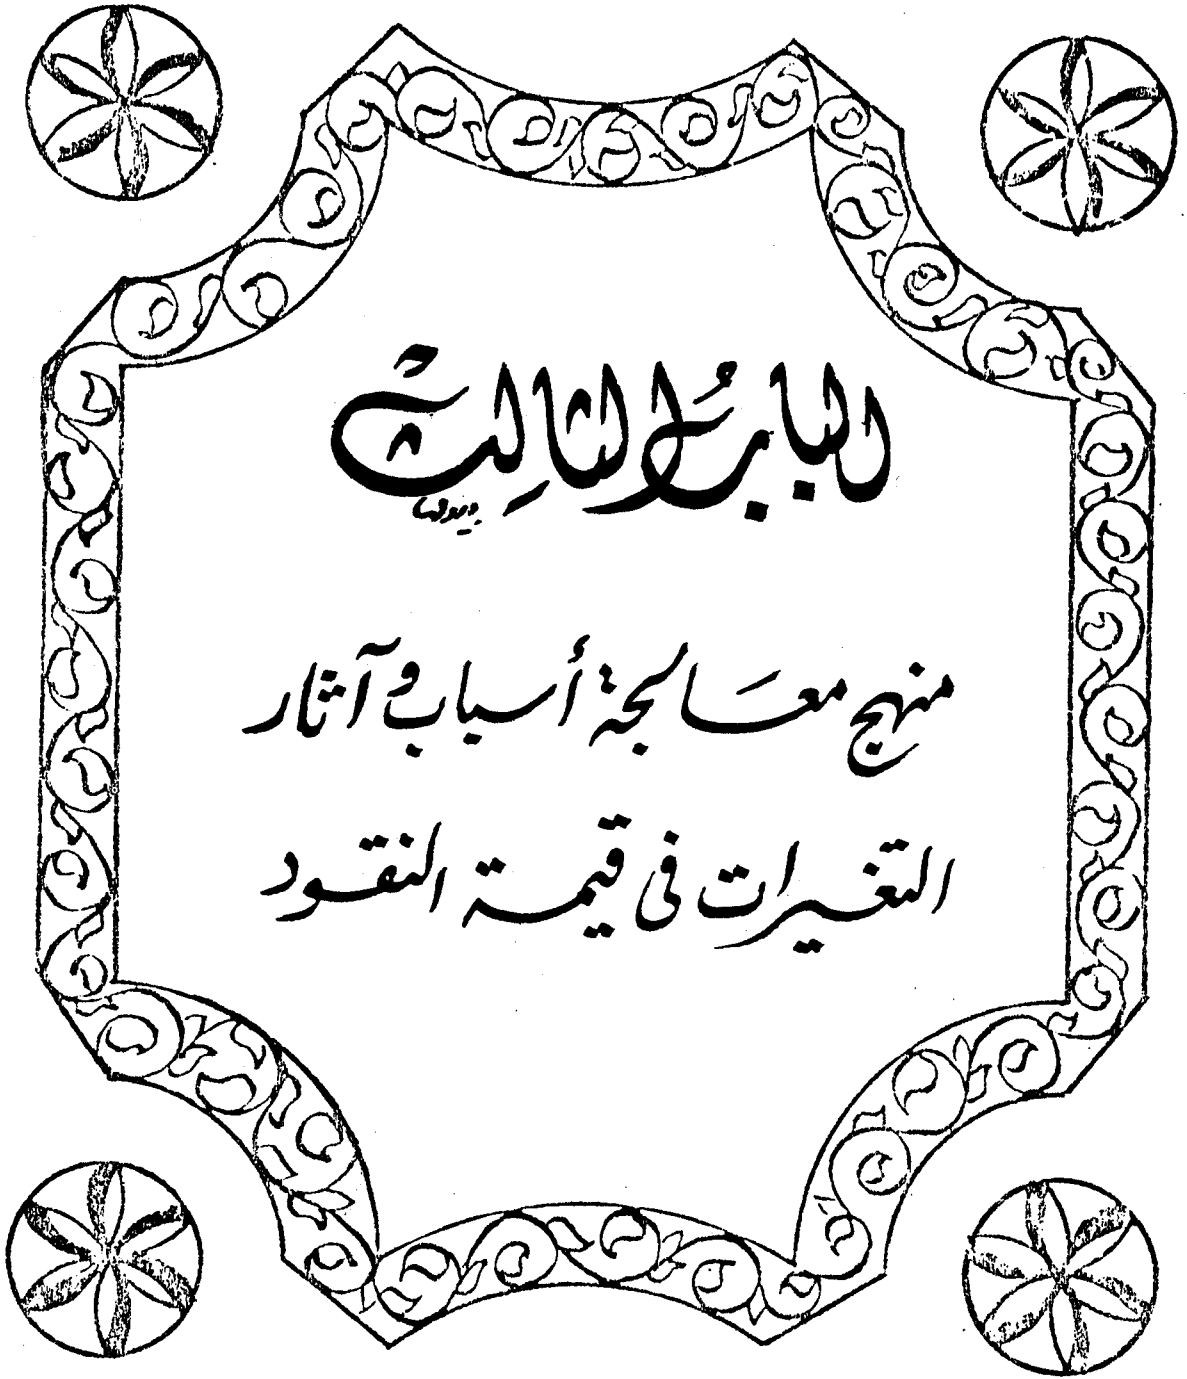 الباب الثالث
منهج معالجة أسباب و آثار
التغيرات فى قيمة النقود